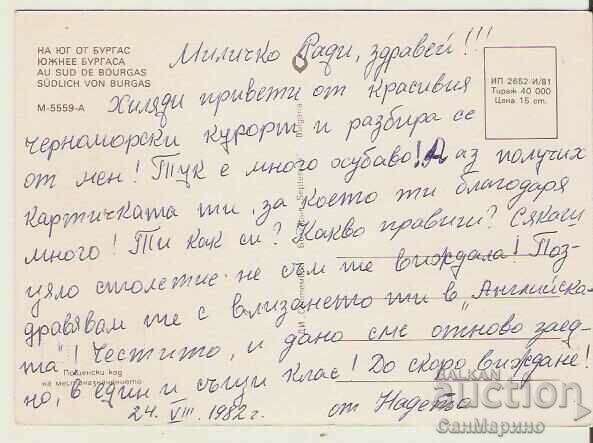 НА ЮГ ОТ БУРГАС
ЮЖНЕЕ БУРГАСА
AU SUD DE BOURGAS
SÜDLICH VON BURGAS
М-5559-А
ИП 2652/И/81
Тираж 40 000
Цена 15 ст.
Миличко Ради, здравей!!!
Хиляди привети от красивия
черноморски курорт и разбира се
от мен! Тук е много хубаво! А аз получих
картичката ти, за което ти благодаря
много! Ти как си? Какво правиш? Сякаш
цяло столетие не съм те виждала! Поз-
дравявам те с влизането ти в „Английска-
та"! Честито, и дано сме отново заед-
но, в един и същи клас! До скоро виждане!
24. VIII. 1982 г. от Надето
Пощенски код
на местоназначението
BALKAN
auction
СанМарино